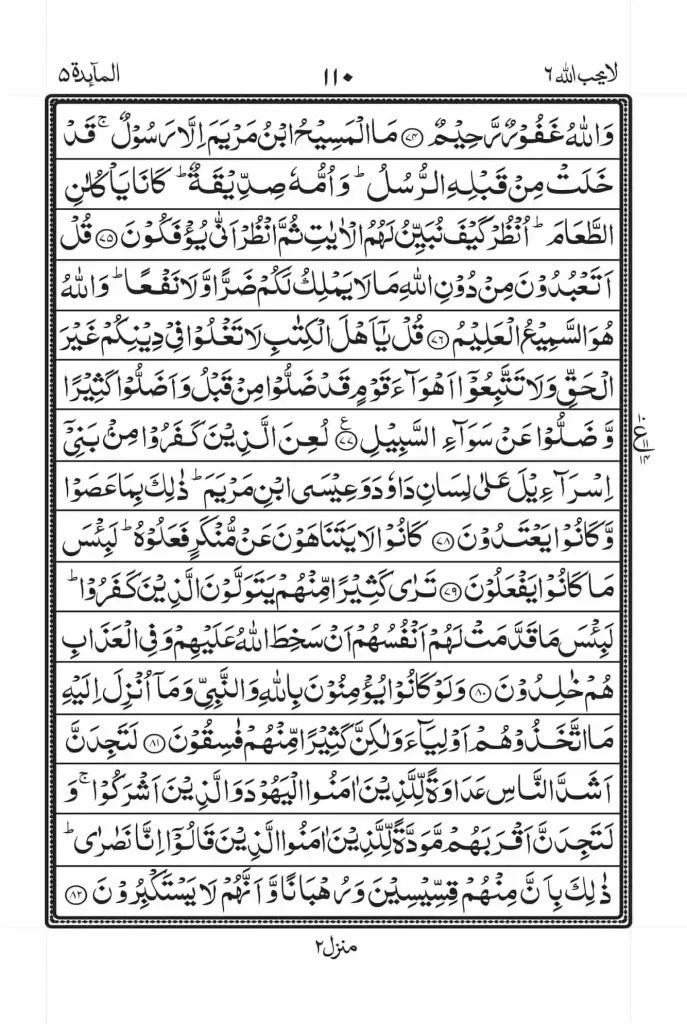 لایحب اللہ ۶ ۱۱۰ المآىِٕدة ۵
وَاللّٰهُ غَفُوْرٌ رَّحِیْمٌ ﴿۷۴﴾ مَا الْمَسِیْحُ ابْنُ مَرْیَمَ اِلَّا رَسُوْلٌ ۚ قَدْ
خَلَتْ مِنْ قَبْلِهِ الرُّسُلُ ؕ وَ اُمُّهٗ صِدِّیْقَةٌ ؕ كَانَا یَاْكُلٰنِ
الطَّعَامَ ؕ اُنْظُرْ كَیْفَ نُبَیِّنُ لَهُمُ الْاٰیٰتِ ثُمَّ انْظُرْ اَنّٰی یُؤْفَكُوْنَ ﴿۷۵﴾ قُلْ
اَتَعْبُدُوْنَ مِنْ دُوْنِ اللّٰهِ مَا لَا یَمْلِكُ لَكُمْ ضَرًّا وَّ لَا نَفْعًا ؕ وَ اللّٰهُ
هُوَ السَّمِیْعُ الْعَلِیْمُ ﴿۷۶﴾ قُلْ یٰۤاَهْلَ الْكِتٰبِ لَا تَغْلُوْا فِیْ دِیْنِكُمْ غَیْرَ
الْحَقِّ وَ لَا تَتَّبِعُوْۤا اَهْوَآءَ قَوْمٍ قَدْ ضَلُّوْا مِنْ قَبْلُ وَ اَضَلُّوْا كَثِیْرًا
وَّ ضَلُّوْا عَنْ سَوَآءِ السَّبِیْلِ ﴿۷۷﴾ ع لُعِنَ الَّذِیْنَ كَفَرُوْا مِنْۢ بَنِیْۤ
۱۰ ع ۱۱ ۱۴
اِسْرَآءِیْلَ عَلٰی لِسَانِ دَاوٗدَ وَ عِیْسَی ابْنِ مَرْیَمَ ؕ ذٰلِكَ بِمَا عَصَوْا
وَّ كَانُوْا یَعْتَدُوْنَ ﴿۷۸﴾ كَانُوْا لَا یَتَنَاهَوْنَ عَنْ مُّنْكَرٍ فَعَلُوْهُ ؕ لَبِئْسَ
مَا كَانُوْا یَفْعَلُوْنَ ﴿۷۹﴾ تَرٰی كَثِیْرًا مِّنْهُمْ یَتَوَلَّوْنَ الَّذِیْنَ كَفَرُوْا ؕ
لَبِئْسَ مَا قَدَّمَتْ لَهُمْ اَنْفُسُهُمْ اَنْ سَخِطَ اللّٰهُ عَلَیْهِمْ وَ فِی الْعَذَابِ
هُمْ خٰلِدُوْنَ ﴿۸۰﴾ وَ لَوْ كَانُوْا یُؤْمِنُوْنَ بِاللّٰهِ وَ النَّبِیِّ وَ مَاۤ اُنْزِلَ اِلَیْهِ
مَا اتَّخَذُوْهُمْ اَوْلِیَآءَ وَ لٰكِنَّ كَثِیْرًا مِّنْهُمْ فٰسِقُوْنَ ﴿۸۱﴾ لَتَجِدَنَّ
اَشَدَّ النَّاسِ عَدَاوَةً لِّلَّذِیْنَ اٰمَنُوا الْیَهُوْدَ وَ الَّذِیْنَ اَشْرَكُوْا ۚ وَ
لَتَجِدَنَّ اَقْرَبَهُمْ مَّوَدَّةً لِّلَّذِیْنَ اٰمَنُوا الَّذِیْنَ قَالُوْۤا اِنَّا نَصٰرٰی ؕ
ذٰلِكَ بِاَنَّ مِنْهُمْ قِسِّیْسِیْنَ وَ رُهْبَانًا وَّ اَنَّهُمْ لَا یَسْتَكْبِرُوْنَ ﴿۸۲﴾
منزل۲